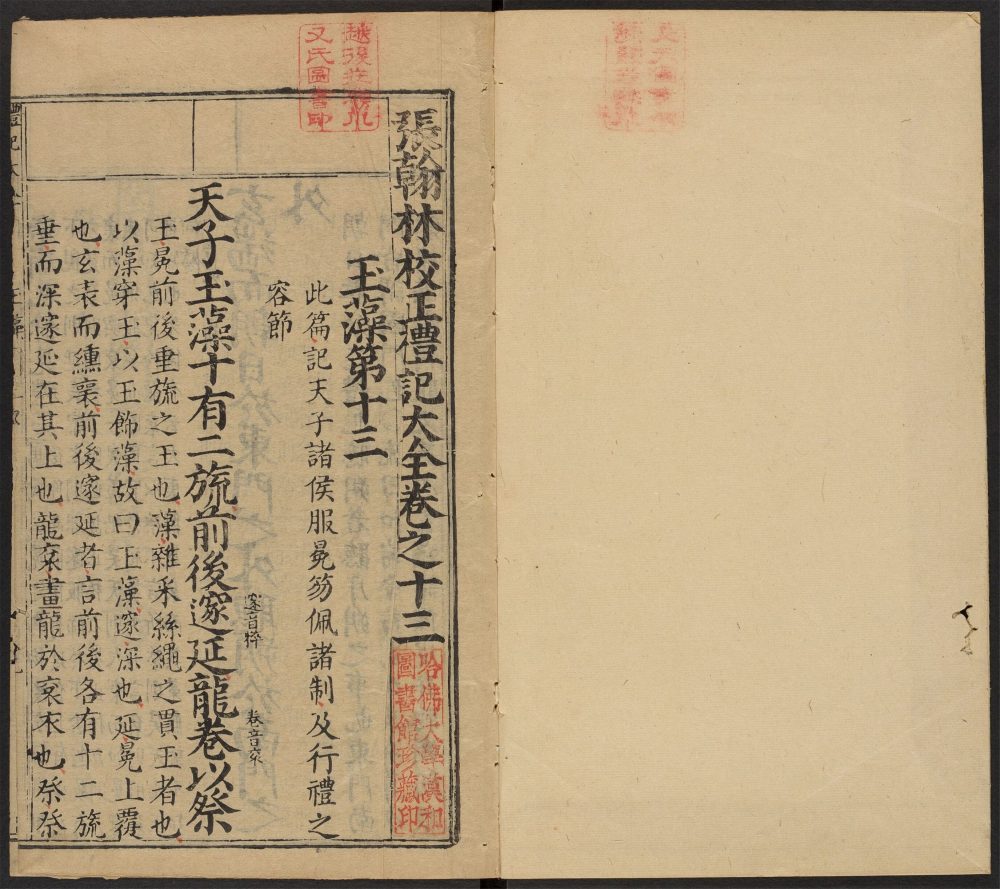 張翰林校正禮記大全卷之十三
玉藻第十三
此篇記天子諸侯服冕笏佩諸制及行禮之
容節
天子玉藻十有二旒前後邃延龍卷以祭
邃音粹
卷音衮
玉冕前後垂旒之玉也藻雜采絲繩之貫玉者也
以藻穿玉以玉飾藻故曰玉藻邃深也延冕上覆
也玄表而纁裏前後邃延者言前後各有十二旒
垂而深邃延在其上也龍衮畫龍於衮衣也祭祭
哈佛大學漢和
圖書館珍藏印